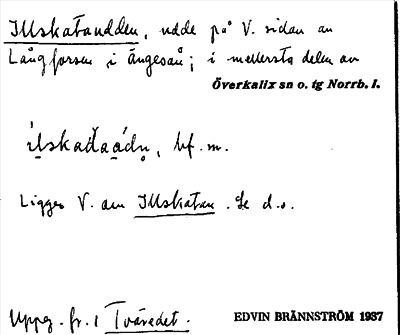 Illskataudden, udde på V. sidan av
Långforsen i Ängesån; i mellersta delen av
Överkalix sn o. tg Norrb. l.
bf. m.
Ligger V. om Illskatan. Se d. o.
Uppg. fr. 1 Tväredet.
EDVIN BRÄNNSTRÖM 1937